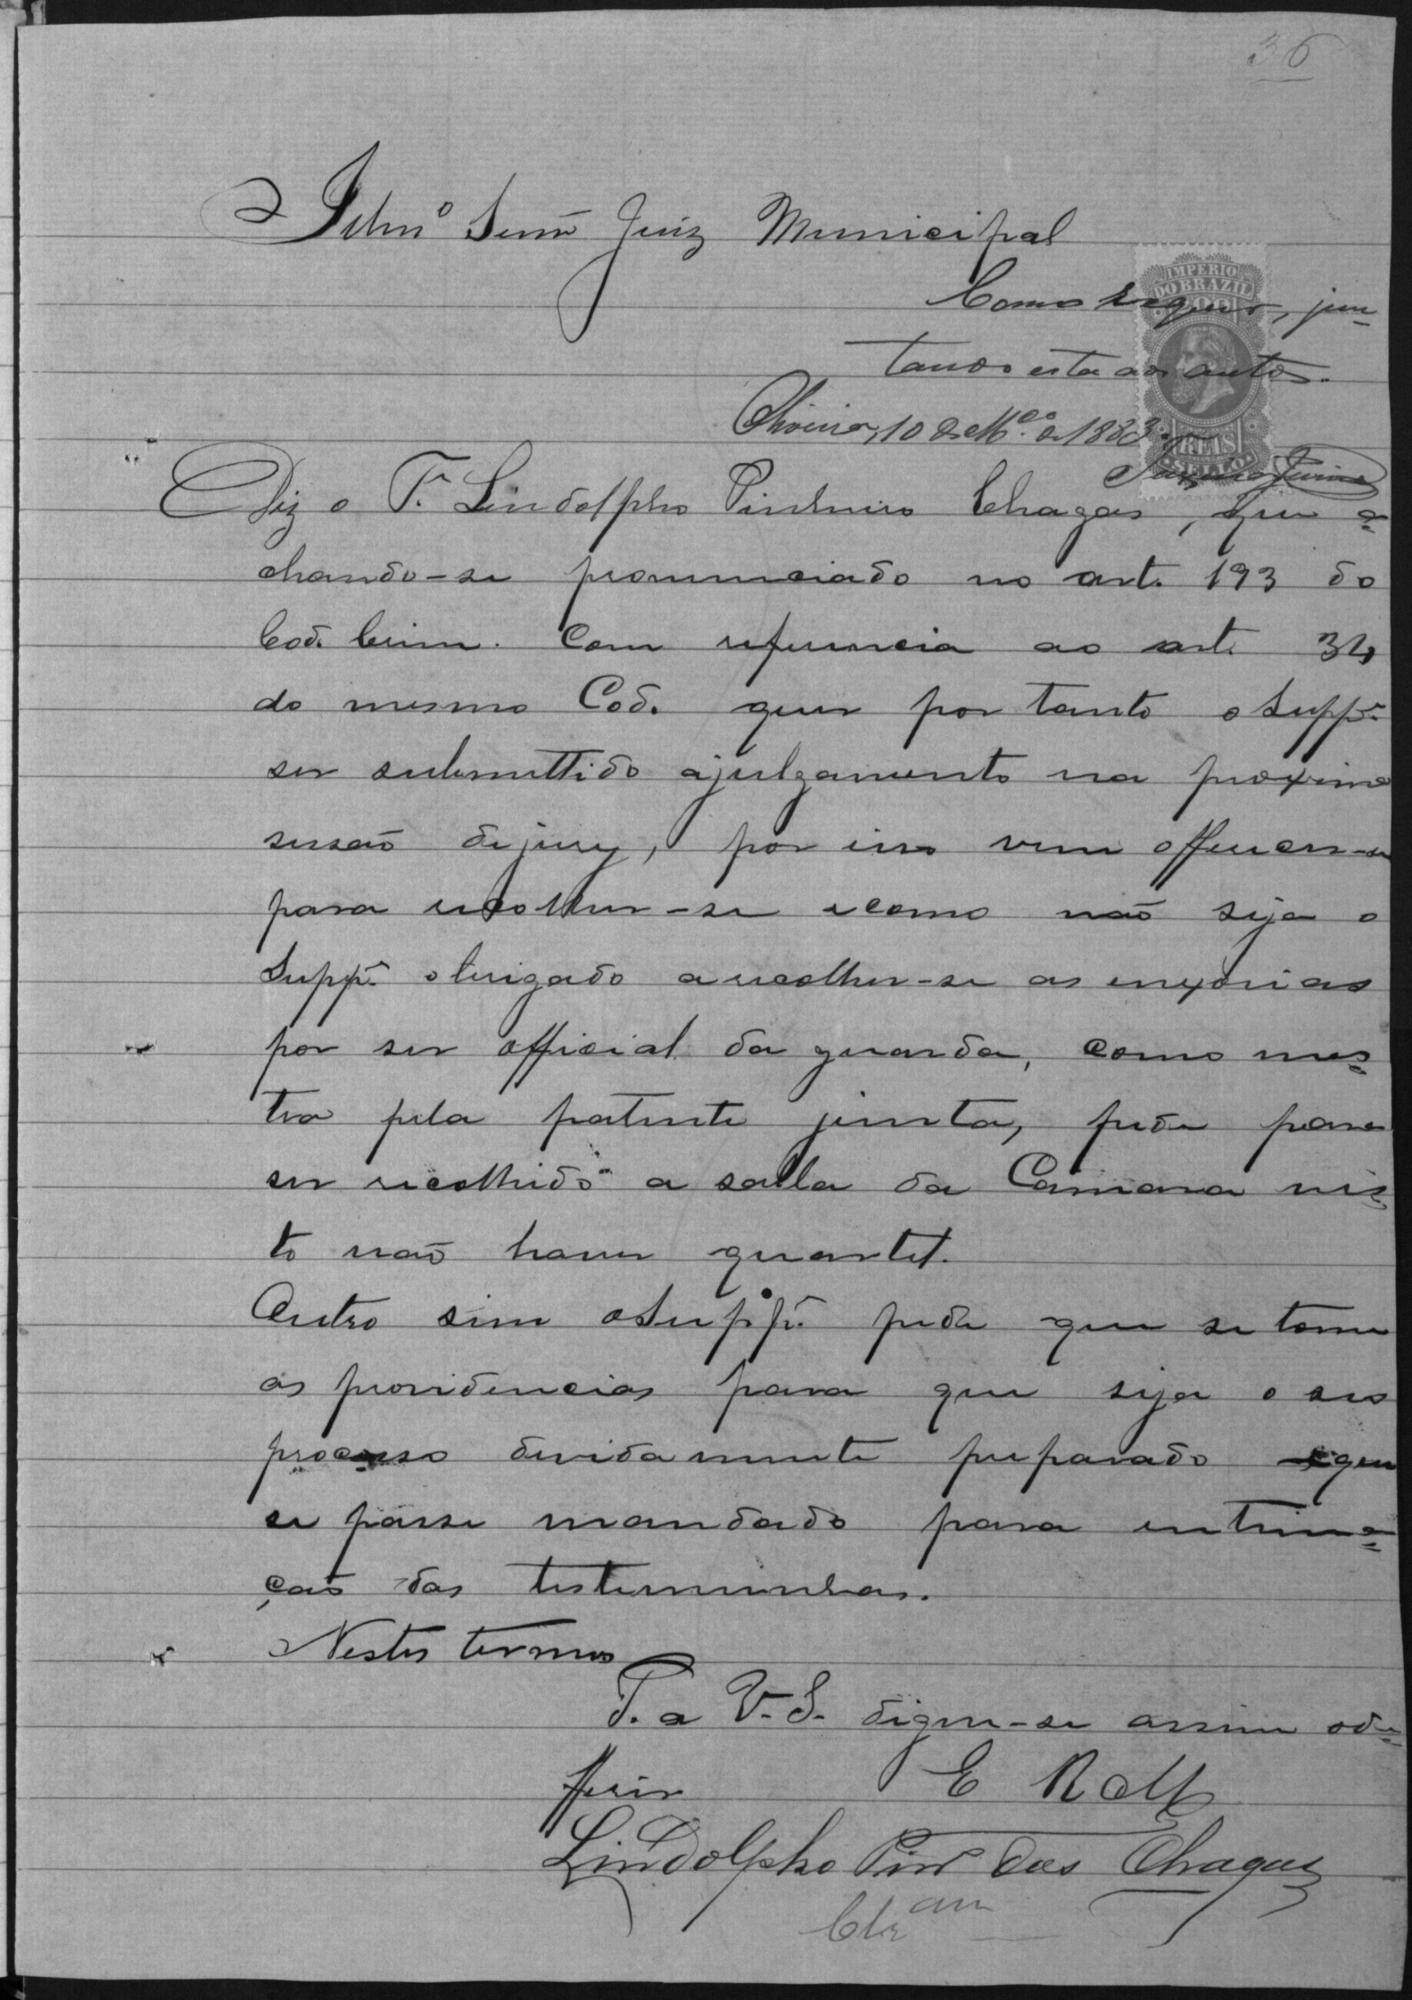 36
Illmo Senr Juiz Municipal
Como requer, jun-
tando esta aos autos.
Oliveira, 10 de Mço de 1883.
IMPERIO
DO BRAZIL
200
REIS
SELLO
Diz o Te Lindolpho Pinheiro Chagas, que a-
chando-se pronunciado no art. 193 do
Cod. Crim. com referencia ao art. 34
do mesmo Cod. quer por tanto o Suppe
ser submettido a julgamento na proxima
sessão de jury, por isso vem offerecer-se
para recolher-se e como não seja o
Suppe obrigado a recolher-se as enxovias
por ser official da guarda, como mos-
tra pela patente junta, pede para
ser recolhido a salla da Camara vis-
to não haver quartel.
Outro sim o Suppe pede que se tome
as providencias para que seja o seo
processo devidamente preparado e que
se passe mandado para intima-
ção das testemunhas.
Nestes termos
P. a V. S. digne-se assim o de-
fferir E R M
Lindolpho Pinro das Chagas